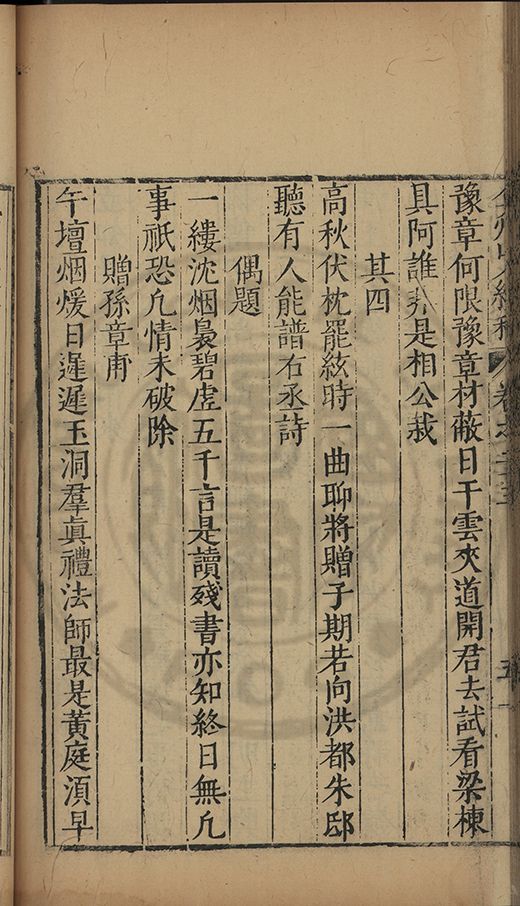 豫章何限豫章材蔽日干雲夾道開君去試看梁棟
具阿誰不是相公栽
其四
高秋伏枕罷絃時一曲聊將贈子期若向洪都朱邸
聽有人能譜右丞詩
偶題
一縷沈烟裊碧虛五千言是讀殘書亦知終日無凢
事祇恐凢情未破除
贈孫章甫
午壇烟煖日遲遲玉洞羣眞禮法師最是黃庭湏早